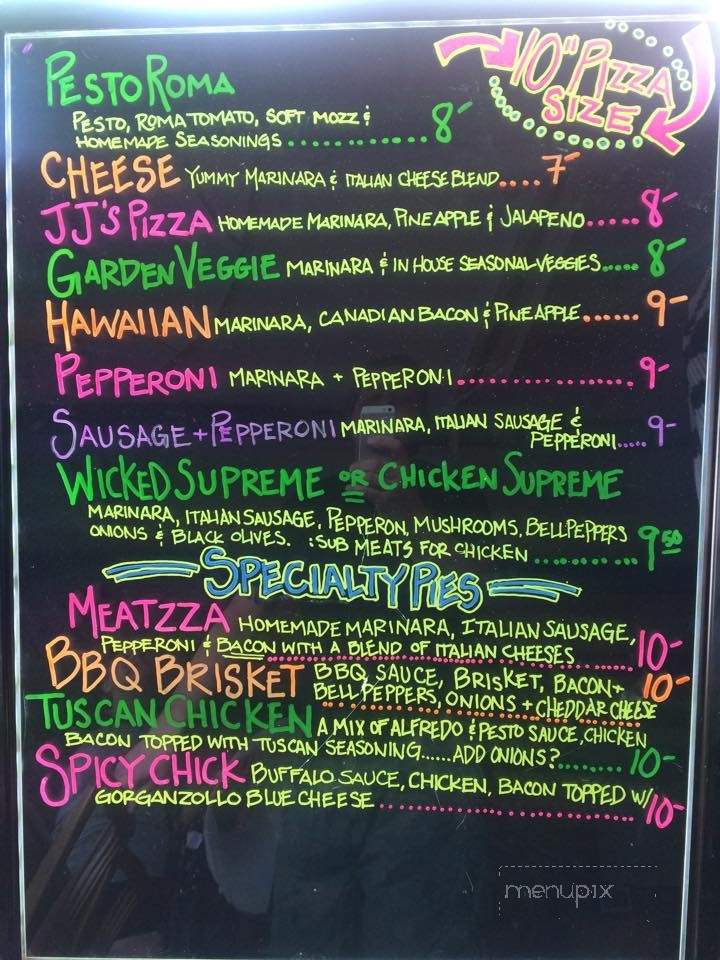 10" PIZZA
SIZE
PESTO ROMA
PESTO, ROMA TOMATO, SOFT MOZZ &
HOMEMADE SEASONINGS.............. 8-
CHEESE YUMMY MARINARA & ITALIAN CHEESE BLEND.... 7-
JJ'S PIZZA HOMEMADE MARINARA, PINEAPPLE & JALAPENO..... 8-
GARDEN VEGGIE MARINARA & IN HOUSE SEASONAL VEGGIES..... 8-
HAWAIIAN MARINARA, CANADIAN BACON & PINEAPPLE...... 9-
PEPPERONI MARINARA + PEPPERONI................. 9-
SAUSAGE + PEPPERONI MARINARA, ITALIAN SAUSAGE &
PEPPERONI..... 9-
WICKED SUPREME OR CHICKEN SUPREME
MARINARA, ITALIAN SAUSAGE, PEPPERON, MUSHROOMS, BELL PEPPERS
ONIONS & BLACK OLIVES. : SUB MEATS FOR CHICKEN........... 9 50
SPECIALTY PIES
MEATZZA HOMEMADE MARINARA, ITALIAN SAUSAGE,
PEPPERONI & BACON WITH A BLEND OF ITALIAN CHEESES ...... 10-
BBQ BRISKET BBQ SAUCE, BRISKET, BACON + 10-
BELL PEPPERS, ONIONS + CHEDDAR CHEESE
TUSCAN CHICKEN A MIX OF ALFREDO & PESTO SAUCE, CHICKEN
BACON TOPPED WITH TUSCAN SEASONING......ADD ONIONS?......... 10-
SPICY CHICK BUFFALO SAUCE, CHICKEN, BACON TOPPED W/
GORGANZOLLO BLUE CHEESE........................ 10-
menupix